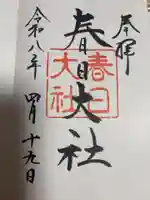 奉拝
春日大社
春日大社
令和八年 四月 十九日